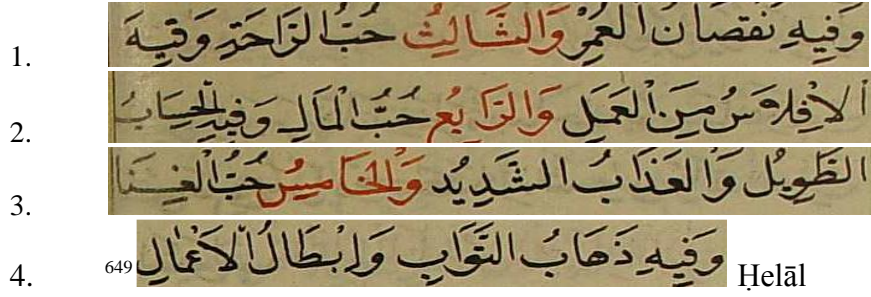 1. وَفِيهِ نُقْصَانُ الْعُمْرِ وَالثَّالِثُ حُبُّ الرَّاحَةِ وَفِيهِ
2. اَلْاِفْلَاسُ مِنَ الْعَمَلِ وَالرَّابِعُ حُبُّ الْمَالِ وَفِيهِ الْحِسَابُ
3. الطَّوِيلُ وَالْعَذَابُ الشَّدِيدُ وَالْخَامِسُ حُبُّ الْغِنَا
4. وَفِيهِ ذَهَابُ الثَّوَابِ وَاِبْطَالُ الْاَعْمَالِ 649 Ḥelāl